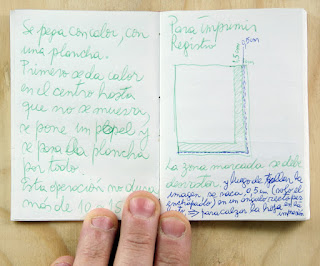 Se pega con calor, con
una plancha.
Primero se da calor
en el centro hasta
que no se mueva,
se pone un papel y
se pasa la plancha
por todo.
Esta operación no dura
más de 10 a 15
Para imprimir
Registro
1,5cm
0,5cm
La zona marcada se debe
descontar, y luego de tallar la
imagen, se saca 0,5cm (solo el
en un ángulo recto por
para calzar la hoja en la
impresión